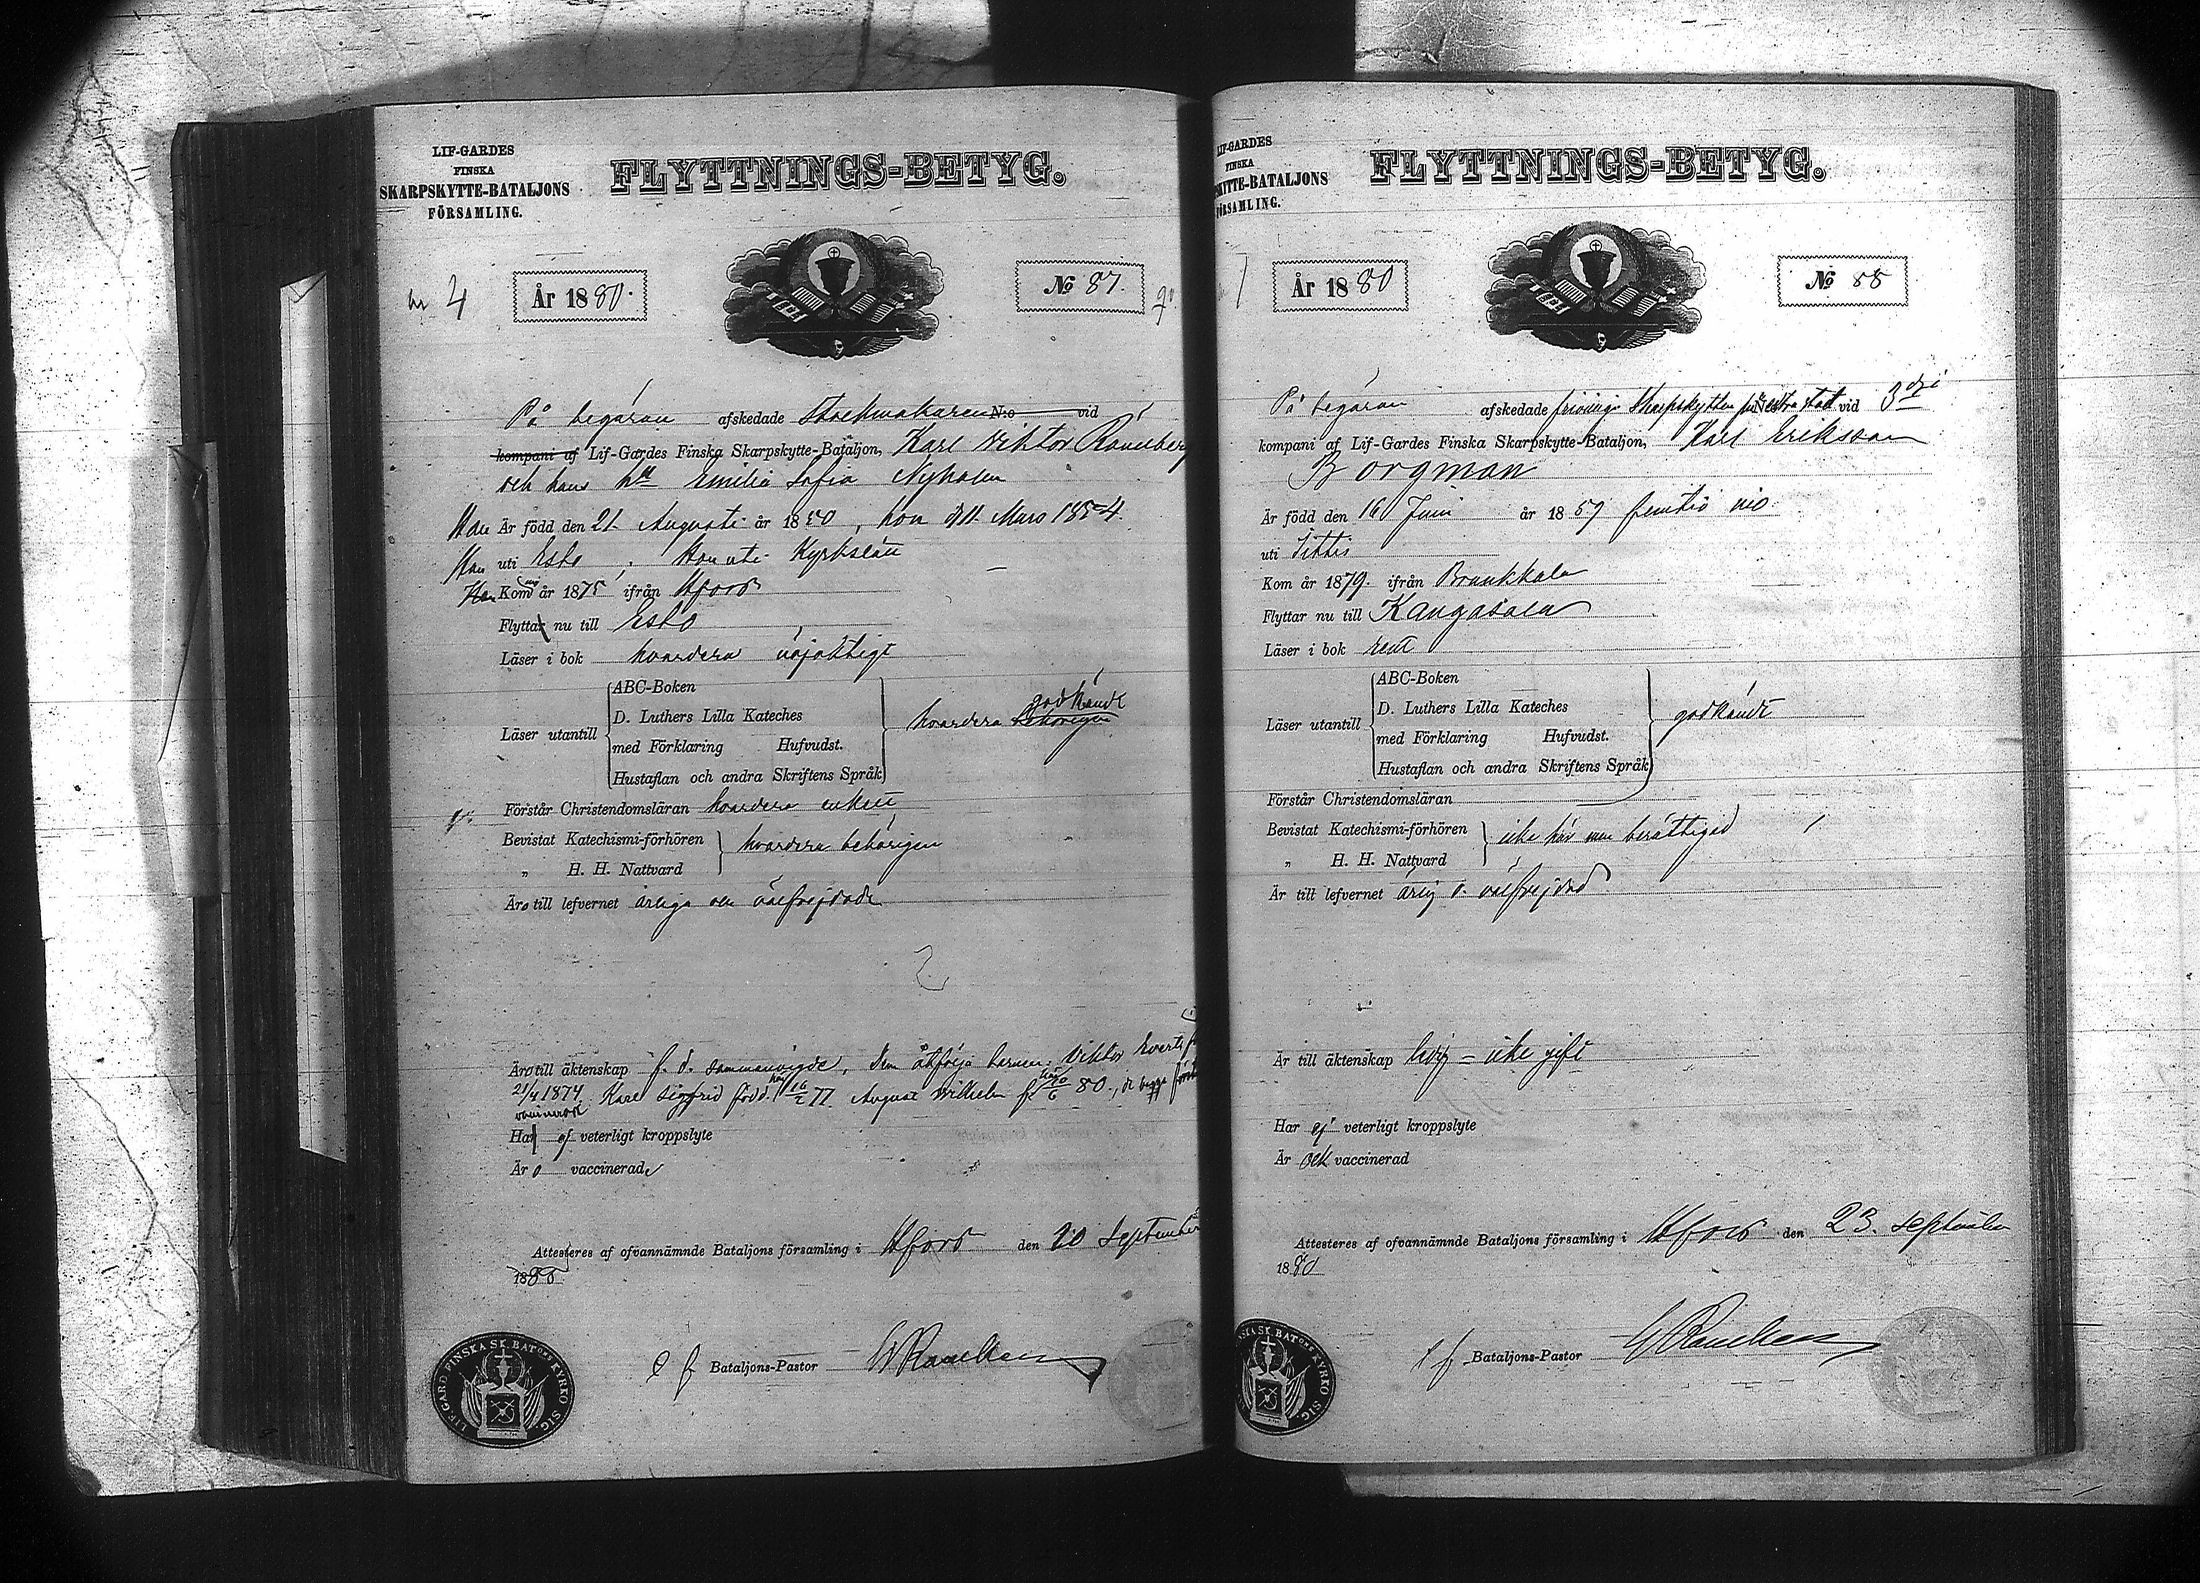 LIF-GARDES
FINSKA
SKARPSKYTTE-BATALJONS
FÖRSAMLING.
FLYTTNINGS-BETYG.
4
År 1880.
No 87.
På begäran afskedade Stockmakaren N:o vid
kompani af Lif-Gardes Finska Skarpskytte-Bataljon, Karl Viktor Rönnberg
och hans Emilia Sofia Nyholm
Han Är född den 21 Augusti år 1850, hon d 11 Mars 1854.
Han uti Esbo. Hon uti Kyrkslätt
Kom år 1875 ifrån Hfors
Flyttar nu till Esbo
Läser i bok hvardera
Läser utantill
ABC-Boken
D. Luthers Lilla Kateches
med Förklaring Hufvudst.
Hustaflan och andra Skriftens Språk
hvardera behörigen godkändt
Förstår Christendomsläran hvardera enkelt
Bevistat Katechismi-förhören
„ H. H. Nattvard
hvardera behörigen
Äro till lefvernet ärliga och välfrejdade
Äro till äktenskap f. d. sammanvigde, dem åtfölja barnen: Viktor Evert
21/4 1874 Karl Sigfrid född 77 August Wilhelm 80, de bägge
Ha ej veterligt kroppslyte
Äro vaccinerade
Attesteres af ofvannämnde Bataljons församling i Hfors den 20 September
1880
e f Bataljons-Pastor
LIF-GARD FINSKA SK. BAT:ONS KYRKO SIG.
LIF-GARDES
FINSKA
SKYTTE-BATALJONS
FÖRSAMLING.
FLYTTNINGS-BETYG.
År 1880
No 88
På begäran afskedade frivillige Skarpskytten vid 3dje
kompani af Lif-Gardes Finska Skarpskytte-Bataljon, Karl Eriksson
Borgman
Är född den 16 Juni år 1859 femtio nio
uti Sittis
Kom år 1879. ifrån Brunkkala
Flyttar nu till Kangasala
Läser i bok rent
Läser utantill
ABC-Boken
D. Luthers Lilla Kateches
med Förklaring Hufvudst.
Hustaflan och andra Skriftens Språk
godkändt
Förstår Christendomsläran
Bevistat Katechismi-förhören
„ H. H. Nattvard
icke här men berättigad
Är till lefvernet ärlig o. välfrejdad
Är till äktenskap ledig = icke gift
Har ej veterligt kroppslyte
Är ock vaccinerad
Attesteres af ofvannämnde Bataljons församling i Hfors den 23. September
1880
e f Bataljons-Pastor
SKA SK. BAT:ONS KYRKO SIG.